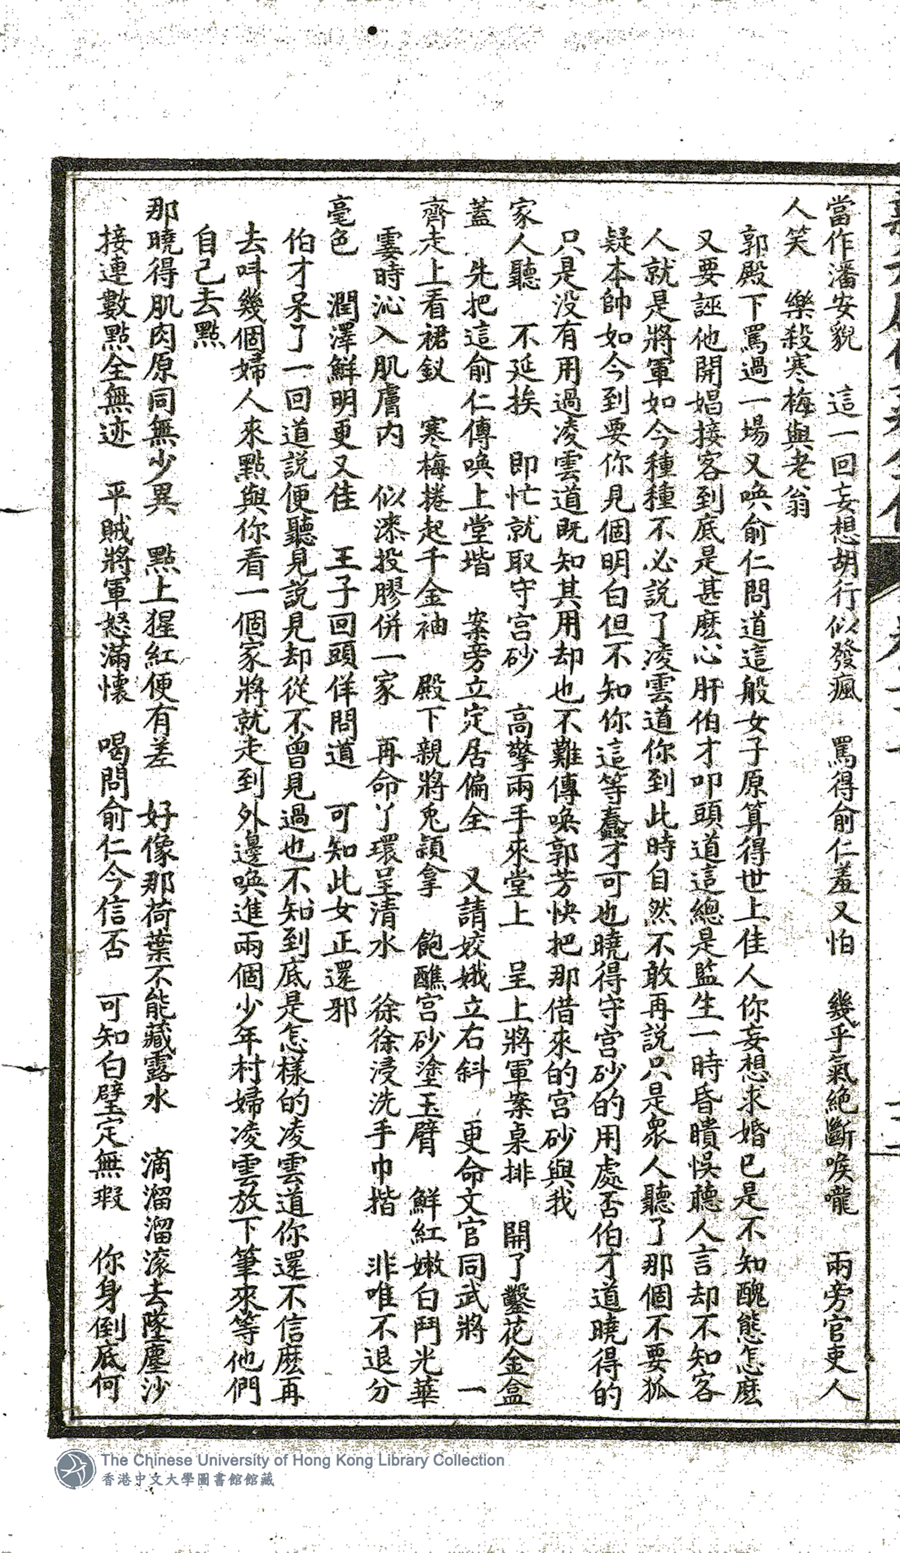 當作潘安貌　這一回妄想胡行似發瘋　罵得俞仁羞又怕　幾乎氣絶斷喉嚨　兩旁官吏人
人笑　樂殺寒梅與老翁
郭殿下罵過一場又喚俞仁問道這般女子原算得世上佳人你妄想求婚已是不知醜態怎麽
又要誣他開娼接客到底是甚麽心肝伯才叩頭道這總是監生一時昏瞶悞聽人言却不知客
人就是將軍如今種種不必説了凌雲道你到此時自然不敢再説只是衆人聽了那個不要狐
疑本帥如今到要你見個明白但不知你這等蠢才可也曉得守宫砂的用處否伯才道曉得的
只是没有用過凌雲道既知其用却也不難傳喚郭芳快把那借來的宫砂與我
家人聽　不延挨　即忙就取守宫砂　高擎兩手來堂上　呈上將軍案桌排　開了鑿花金盒
蓋　先把這俞仁傳喚上堂堦　案旁立定居偏全　又請姣娥立右斜　更命文官同武將　一
齊走上看裙釵　寒梅捲起千金袖　殿下親將兎頴拿　飽醮宫砂塗玉臂　鮮紅嫩白鬥光華
霎時沁入肌膚内　似漆投膠併一家　再命丫環呈清水　徐徐浸洗手巾揩　非唯不退分
毫色　潤澤鮮明更又佳　王子回頭佯問道　可知此女正還邪
伯才呆了一回道説便聽見説見却從不曾見過也不知到底是怎樣的凌雲道你還不信麽再
去呌幾個婦人來點與你看一個家將就走到外邊喚進兩個少年村婦凌雲放下筆來等他們
自己去點
那曉得肌肉原同無少異　點上猩紅便有差　好像那荷葉不能藏露水　滴溜溜滚去墜塵沙
接連數點全無迹　平賊將軍怒滿懷　喝問俞仁今信否　可知白璧定無瑕　你身倒底何
The Chinese University of Hong Kong Library Collection
香港中文大學圖書館館藏